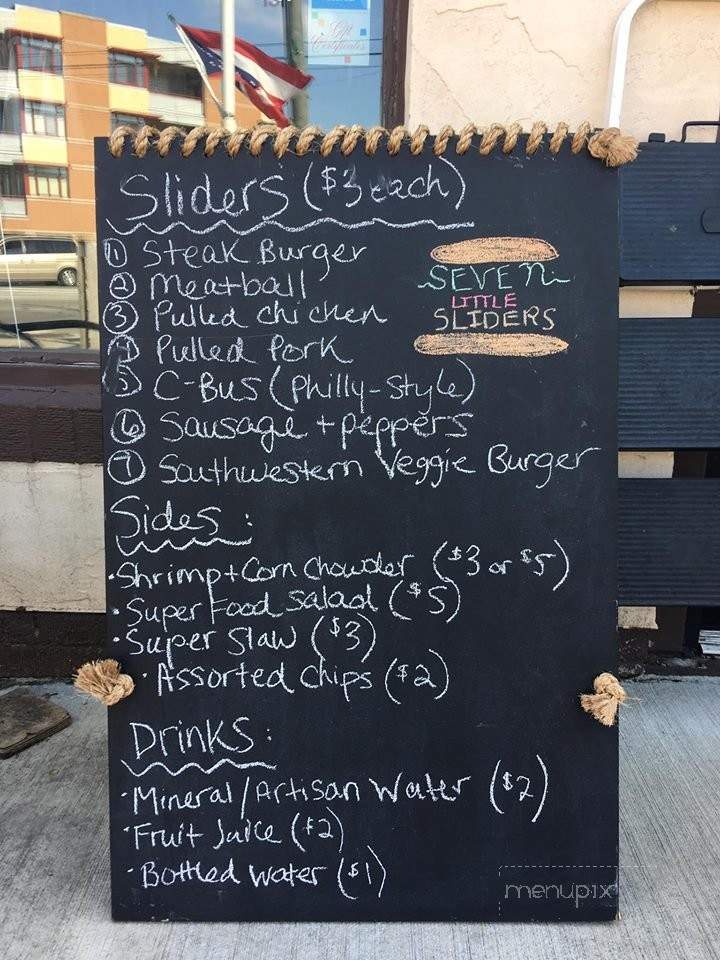 Gift
Certificates
Sliders ($3 each)
① Steak Burger
② Meatball
③ Pulled chicken
④ Pulled Pork
⑤ C-Bus (Philly-Style)
⑥ Sausage + peppers
⑦ Southwestern Veggie Burger
SEVEN
LITTLE
SLIDERS
Sides:
• Shrimp + Corn Chowder ($3 or $5)
• Super Food Salad ($5)
• Super Slaw ($3)
• Assorted chips ($2)
Drinks:
• Mineral/Artisan Water ($2)
• Fruit Juice ($2)
• Bottled Water ($1)
menupix